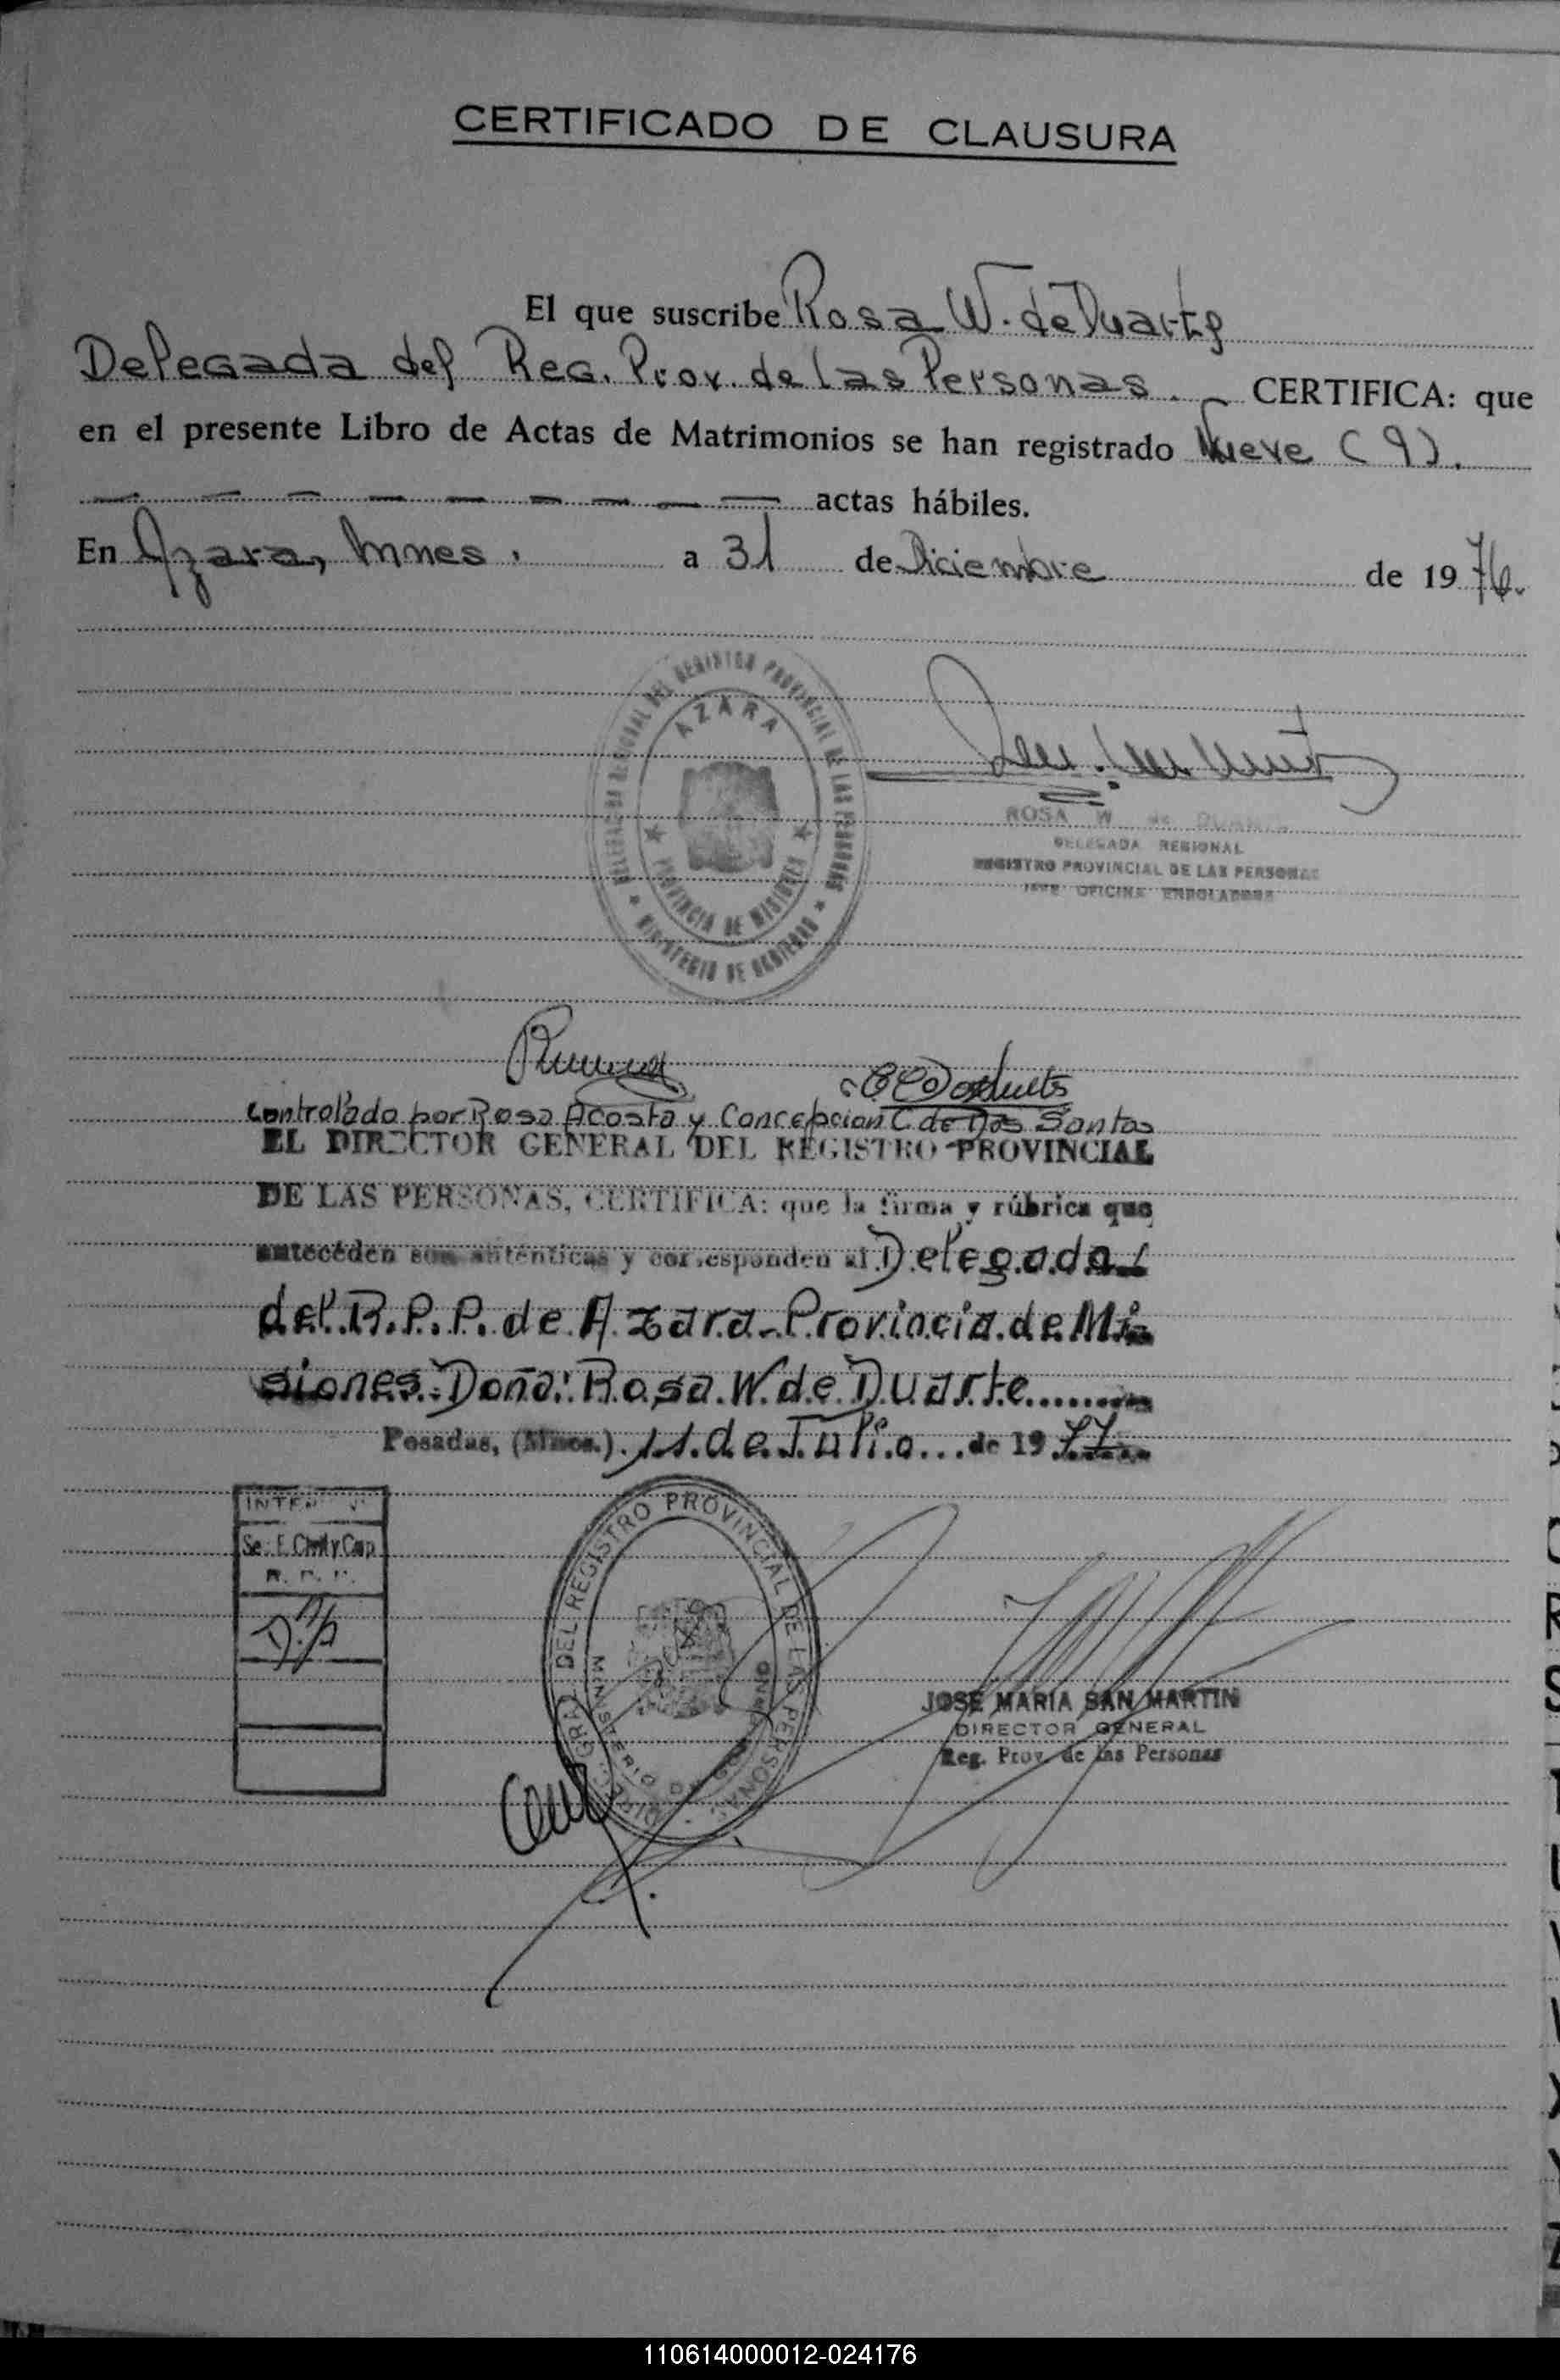 CERTIFICADO DE CLAUSURA
El que suscribe Rosa W. de Duarte
Delegada del Reg. Prov. de las Personas. CERTIFICA: que
en el presente Libro de Actas de Matrimonios se han registrado Nueve (9).
actas hábiles.
En Azara, Mnes. a 31 de Diciembre de 1976.
DELEGACION REGIONAL DEL REGISTRO PROVINCIAL DE LAS PERSONAS
AZARA
PROVINCIA DE MISIONES
MINISTERIO DE GOBIERNO
ROSA W. de DUARTE
DELEGADA REGIONAL
REGISTRO PROVINCIAL DE LAS PERSONAS
JEFE OFICINA ENROLADORA
Controlado por Rosa Acosta y Concepcion C. de Dos Santos
EL DIRECTOR GENERAL DEL REGISTRO PROVINCIAL
DE LAS PERSONAS, CERTIFICA: que la firma y rúbrica que
anteceden son auténticas y corresponden al Delegada
del R.P.P. de Azara-Provincia de Mi-
siones. Doña: Rosa W. de Duarte
Posadas, (Mnes.) 11 de Julio de 1977
Civil y Cap
R. P. P.
DIREC. GRAL. DEL REGISTRO PROVINCIAL DE LAS PERSONAS
MINISTERIO DE GOBIERNO
JOSE MARIA SAN MARTIN
DIRECTOR GENERAL
Reg. Prov. de las Personas
110614000012-024176